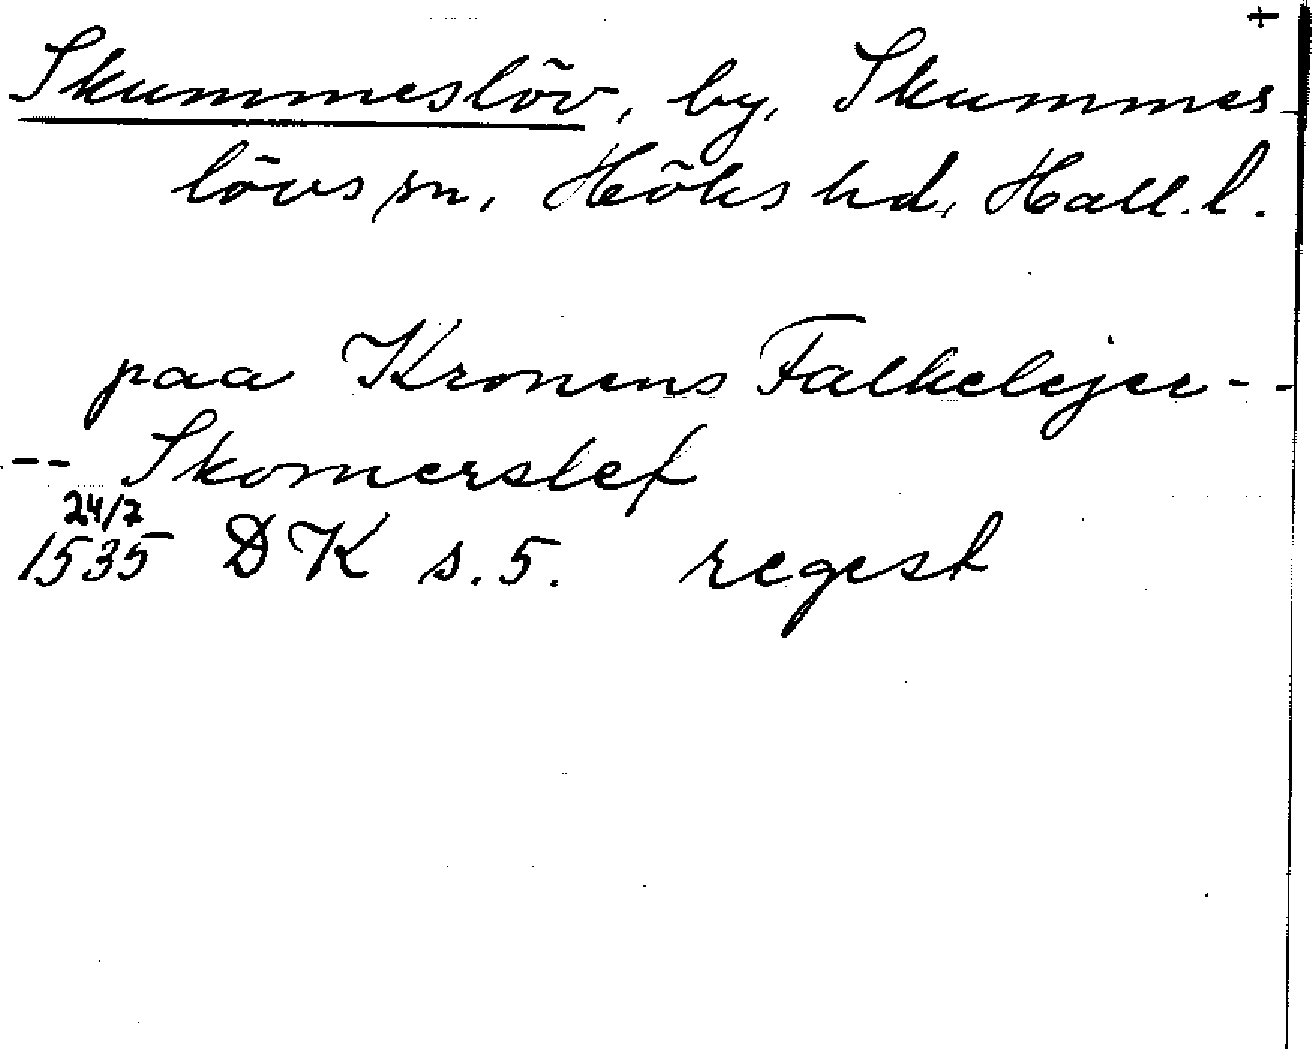 +
Skummeslöv, by, Skummes-
lövs sn, Höks hd, Hall. l.
paa Kronens Falkelejer--
-- Skomerslef
24/7
1535 DK s. 5. regest